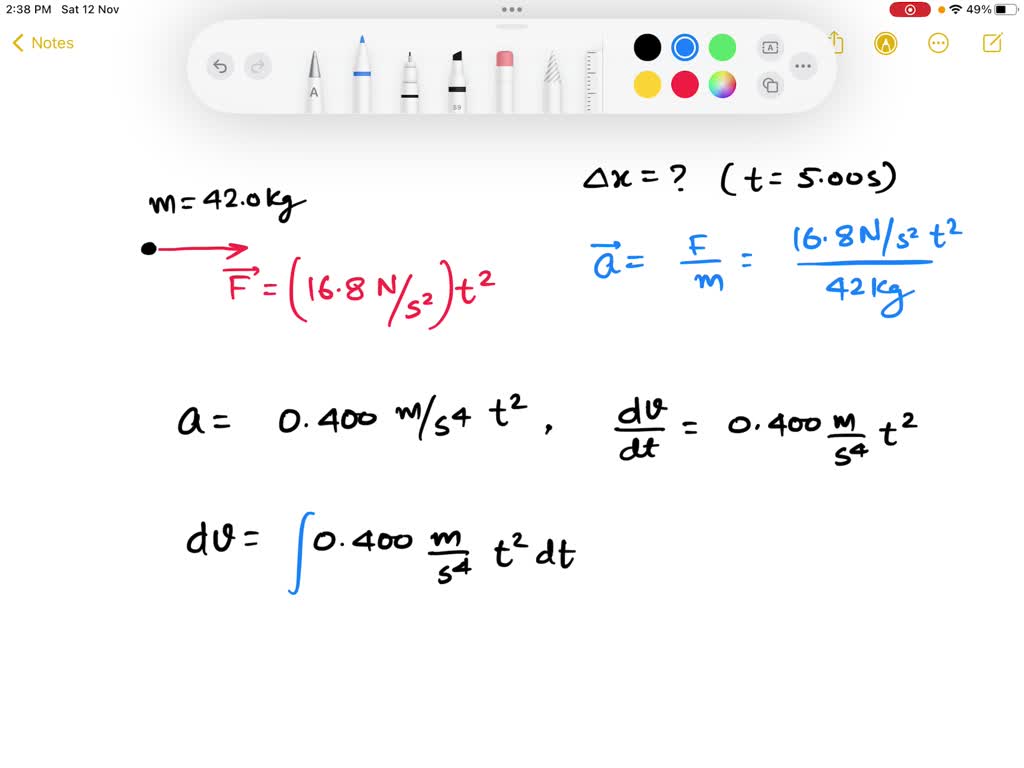 2:38 PM Sat 12 Nov
49%
Notes
A
59
A
m = 42.0 kg
Δx = ? (t = 5.00s)
F⃗ = (16.8 N/s²) t²
a⃗ = F/m = 16.8 N/s² t² / 42 kg
a = 0.400 m/s⁴ t² , dv/dt = 0.400 m/s⁴ t²
dv = ∫ 0.400 m/s⁴ t² dt